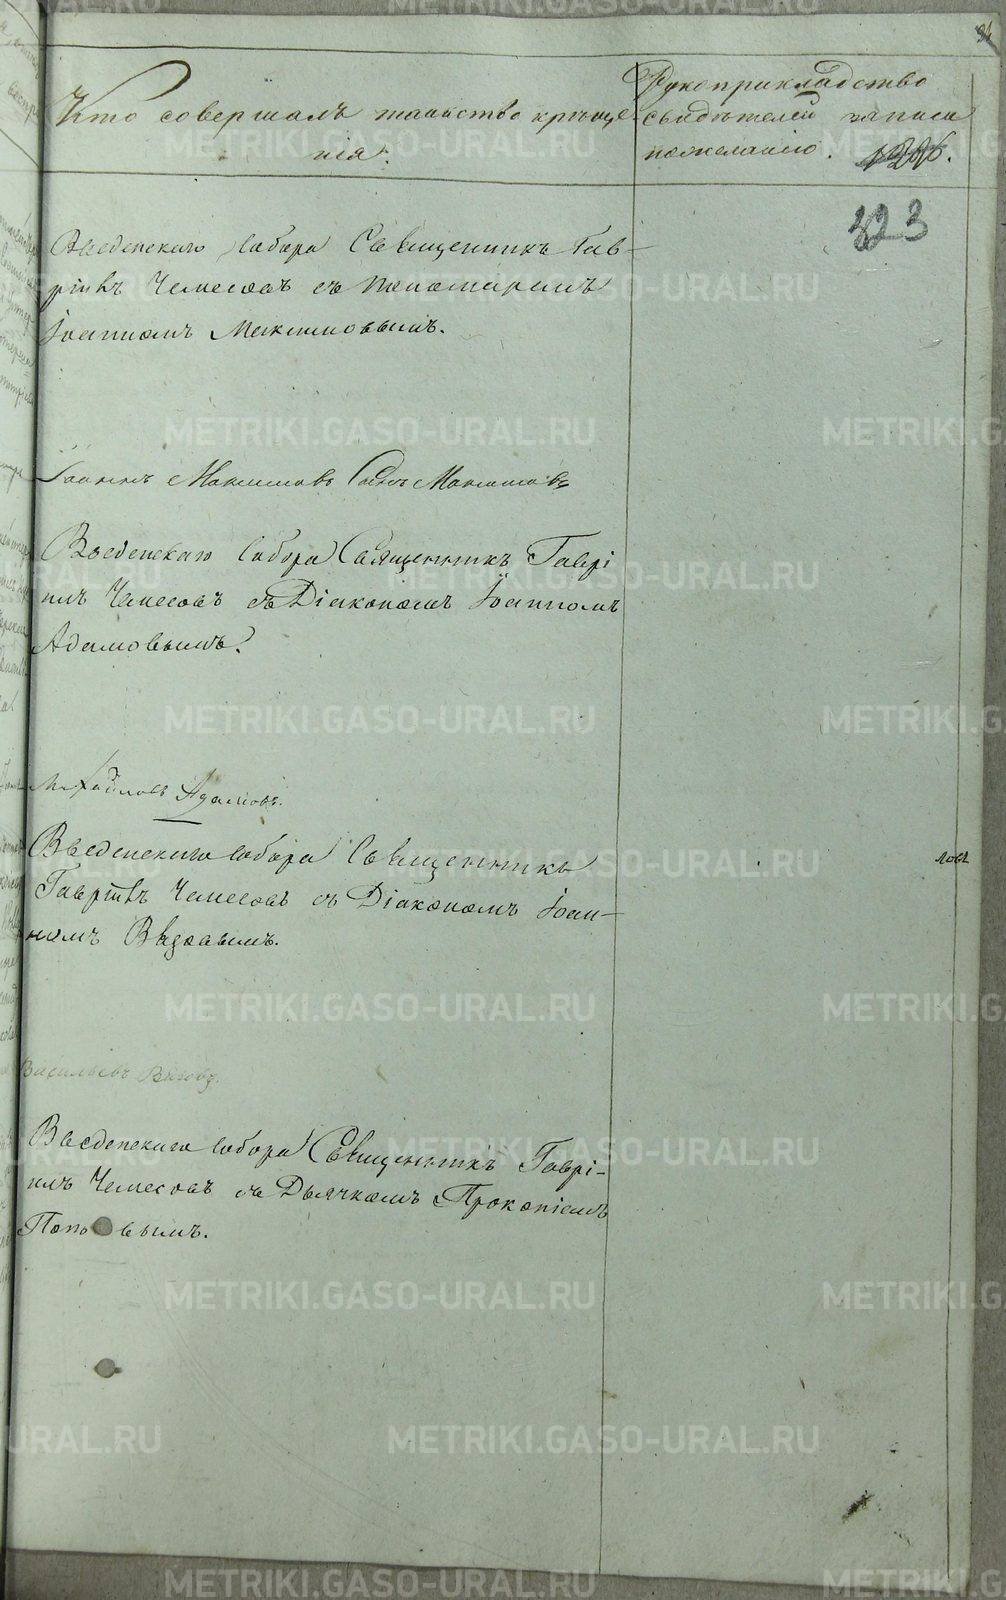 Кто совершалъ таинство креще-
нія.
Рукоприкладство
свидѣтелей записи
по желанію.
323
Введенскаго Собора Священникъ Гав-
ріилъ Чемесовъ съ Пономаремъ
Іоанномъ Максимовымъ.
Іоаннъ Максимовъ Максимовъ
Введенскаго Собора Священникъ Гаврі
илъ Чемесовъ съ Діакономъ Іоанномъ
Адамовымъ.
Михайловъ Адамовъ.
Введенскаго Собора Священникъ
Гавріилъ Чемесовъ съ Діакономъ Іоан-
номъ
ловъ
Васильевъ
Введенскаго Собора Священникъ Гаврі-
илъ Чемесовъ съ Дьячкомъ Прокопіемъ
Поповымъ.
METRIKI.GASO-URAL.RU